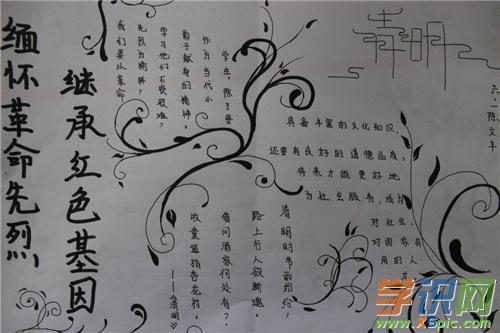 缅怀革命先烈,
继承红色基因
清明
六一陈文
我们要以革命
先烈为榜样,
学习他们不畏艰难,
勇于献身的精神,
作为当代小
学生,除了要
具备丰富的文化知识,
还要有良好的道德品质,
将来才能更好地
为社会服务,成为
对社会、有
对国家有
用的人才
清明时节雨纷纷,
路上行人欲断魂。
借问酒家何处有?
牧童遥指杏花村。
——《清明》
学识网
XSpic.com